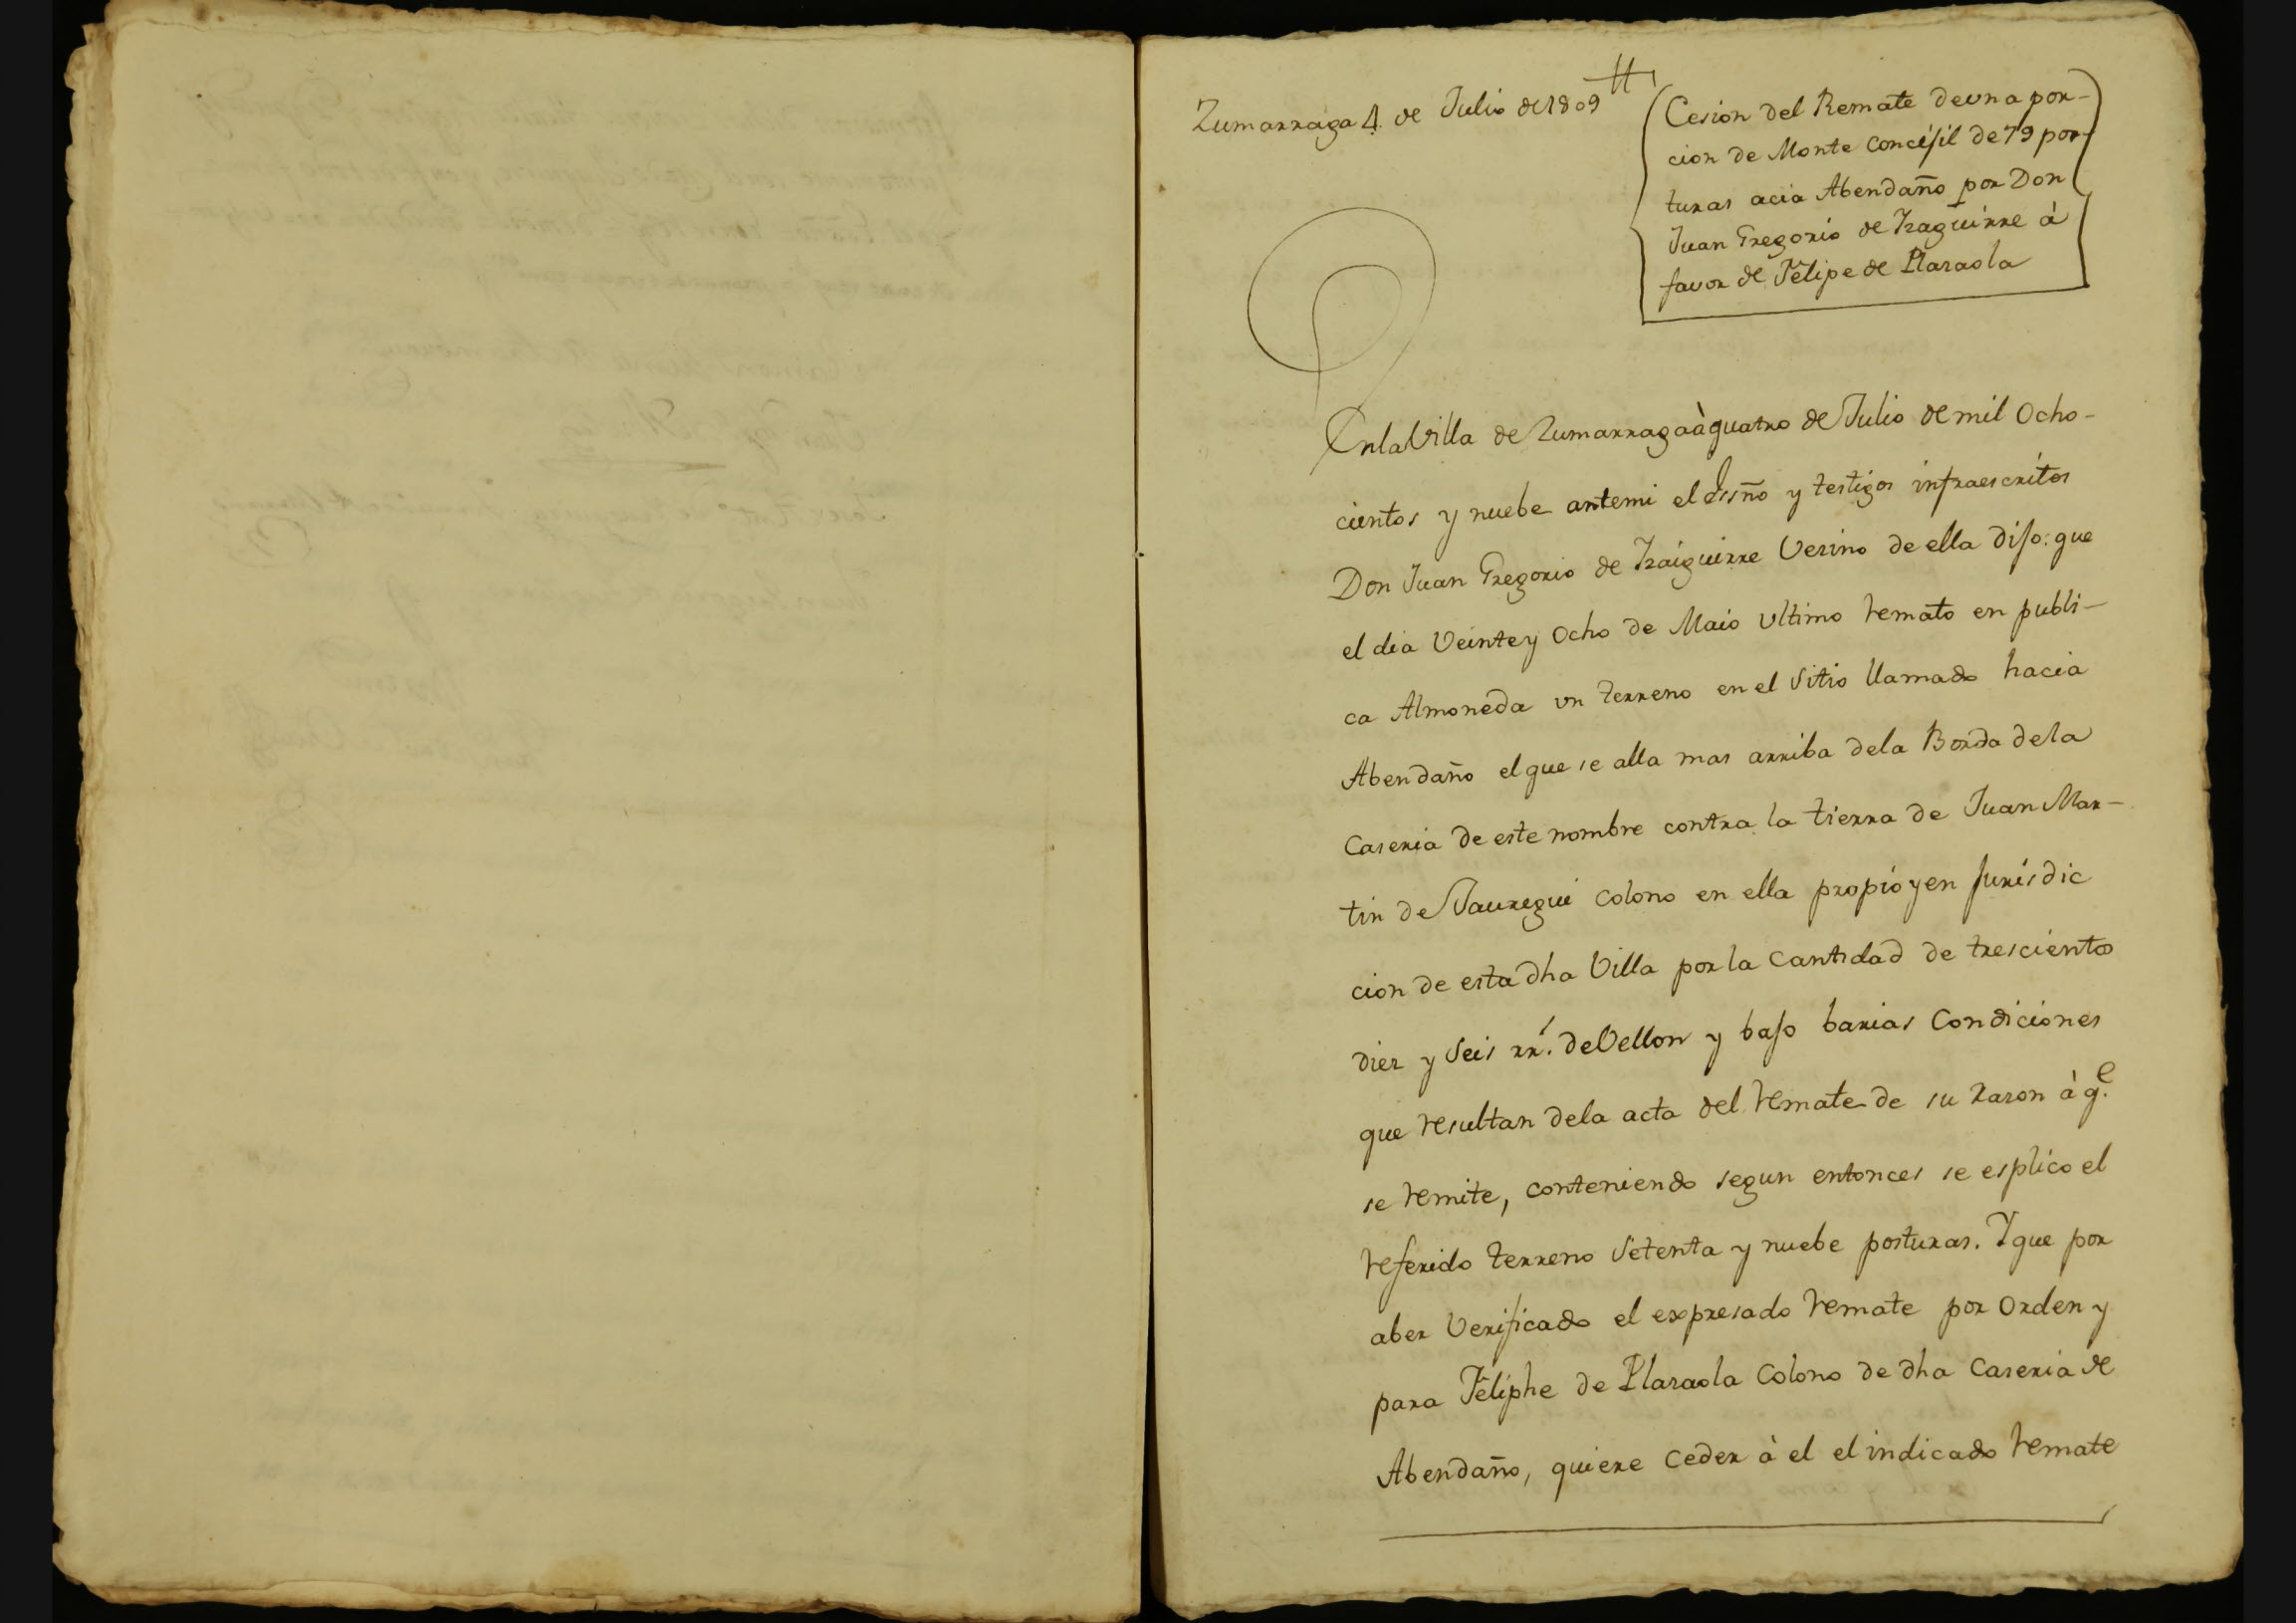 Zumarraga 4 de Julio de 1809
Cesion del Remate de una por-
cion de Monte concejil de 79 pos-
turas acia Abendaño por Don
Juan Gregorio de Izaguirre à
favor de Felipe de Plazaola
En la Villa de Zumarraga à quatro de Julio de mil Ocho-
cientos y nuebe ante mi el Essño y testigos infraescritos
Don Juan Gregorio de Izaiguirre Vezino de ella dijo: que
el dia Veinte y Ocho de Maio Ultimo remato en publi-
ca Almoneda un terreno en el Sitio llamado hacia
Abendaño el que se alla mas arriba de la Borda de la
Caseria de este nombre contra la tierra de Juan Mar-
tin de Jauregui Colono en ella propio y en Jurisdic
cion de esta dha Villa por la Cantidad de trescientos
diez y Seis rr.^s de Vellon y bajo barias Condiciones
que resultan de la acta del remate de su razon à q.^e
se remite, conteniendo segun entonces se esplico el
referido terreno Setenta y nuebe posturas. Y que por
aber Verificado el expresado remate por Orden y
para Feliphe de Plazaola Colono de dha Caseria de
Abendaño, quiere Ceder à el el indicado remate